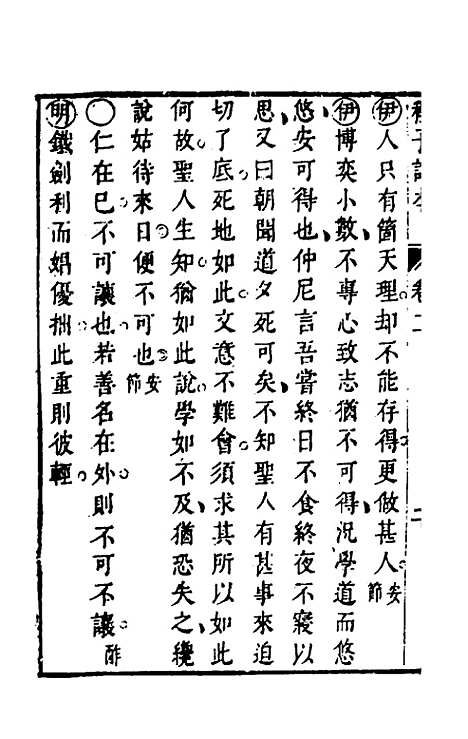 伊人只有箇天理却不能存得更做甚人安節
伊博奕小數不專心致志猶不可得况學道而悠
悠安可得也仲尼言吾嘗終日不食終夜不寢以
思又曰朝聞道夕死可矣不知聖人有甚事來迫
切了底死地如此文意不難會須求其所以如此
何故聖人生知猶如此說學如不及猶恐失之纔
說姑待來日便不可也安節
○仁在已不可讓也若善名在外則不可不讓酢
明鐵劍利而娼優拙此重則彼輕